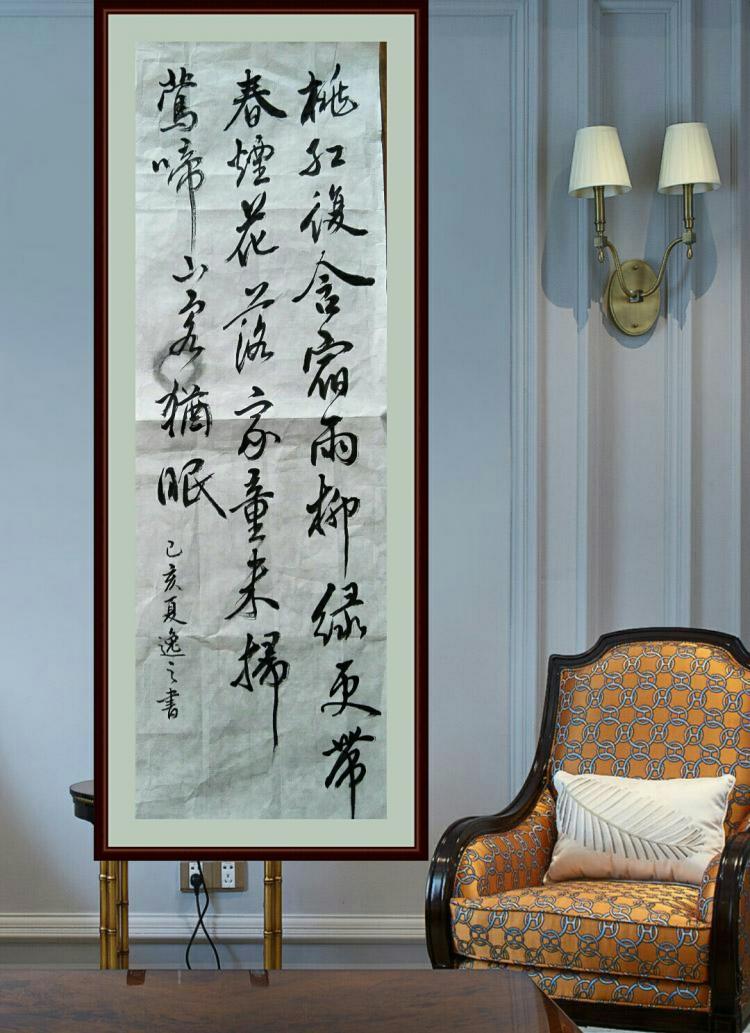 桃红復含宿雨柳绿更带
春煙花落家童未掃
莺啼山客猶眠
己亥夏逸之書